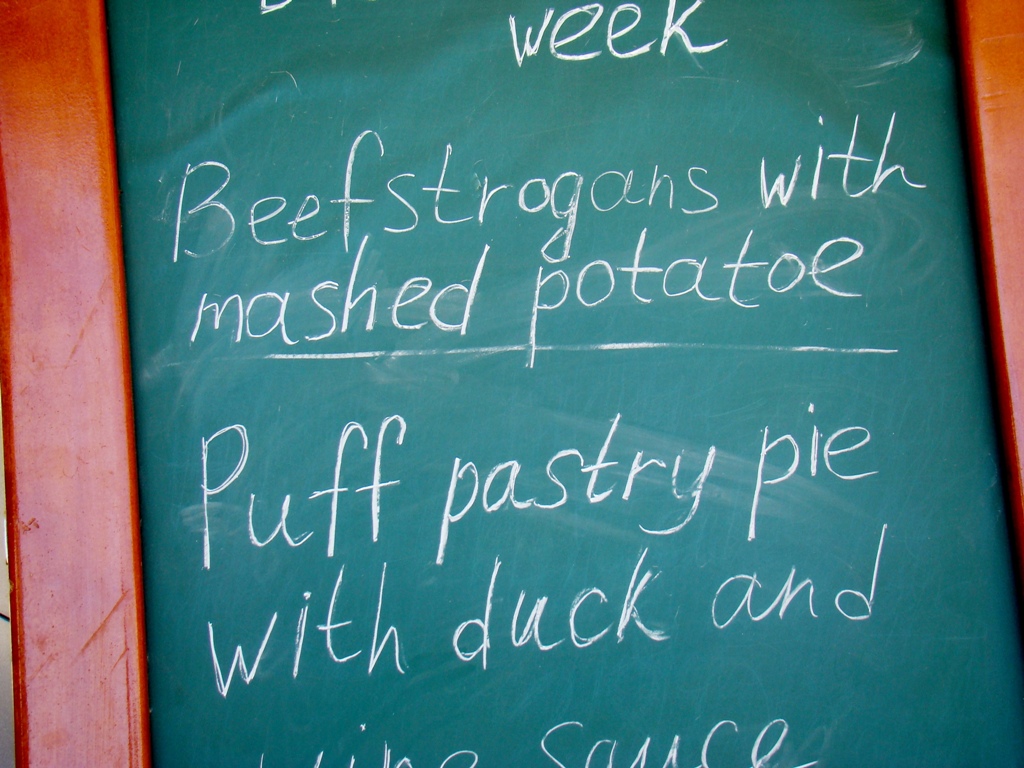 week
Beefstrogans with
mashed potatoe
Puff pastry pie
with duck and
wine sauce